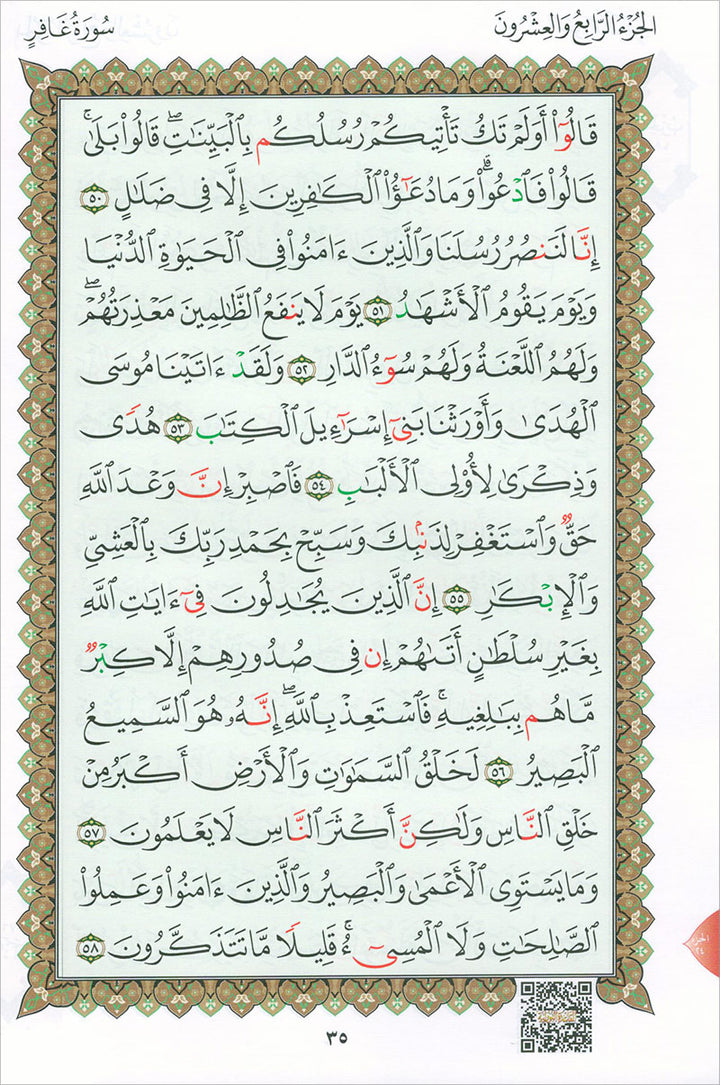 الجُزْءُ الرَّابِعُ وَالعِشْرُونَ
سُورَةُ غَافِرٍ
قَالُوٓا۟ أَوَلَمْ تَكُ تَأْتِيكُمْ رُسُلُكُم بِٱلْبَيِّنَٰتِۖ قَالُوا۟ بَلَىٰۚ
قَالُوا۟ فَٱدْعُوا۟ۗ وَمَا دُعَٰٓؤُا۟ ٱلْكَٰفِرِينَ إِلَّا فِى ضَلَٰلٍ ٥٠
إِنَّا لَنَنصُرُ رُسُلَنَا وَٱلَّذِينَ ءَامَنُوا۟ فِى ٱلْحَيَوٰةِ ٱلدُّنْيَا
وَيَوْمَ يَقُومُ ٱلْأَشْهَٰدُ ٥١ يَوْمَ لَا يَنفَعُ ٱلظَّٰلِمِينَ مَعْذِرَتُهُمْۖ
وَلَهُمُ ٱللَّعْنَةُ وَلَهُمْ سُوٓءُ ٱلدَّارِ ٥٢ وَلَقَدْ ءَاتَيْنَا مُوسَى
ٱلْهُدَىٰ وَأَوْرَثْنَا بَنِىٓ إِسْرَٰٓءِيلَ ٱلْكِتَٰبَ ٥٣ هُدًى
وَذِكْرَىٰ لِأُو۟لِى ٱلْأَلْبَٰبِ ٥٤ فَٱصْبِرْ إِنَّ وَعْدَ ٱللَّهِ
حَقٌّ وَٱسْتَغْفِرْ لِذَنۢبِكَ وَسَبِّحْ بِحَمْدِ رَبِّكَ بِٱلْعَشِىِّ
وَٱلْإِبْكَٰرِ ٥٥ إِنَّ ٱلَّذِينَ يُجَٰدِلُونَ فِىٓ ءَايَٰتِ ٱللَّهِ
بِغَيْرِ سُلْطَٰنٍ أَتَىٰهُمْ إِن فِى صُدُورِهِمْ إِلَّا كِبْرٌ
مَّا هُم بِبَٰلِغِيهِۚ فَٱسْتَعِذْ بِٱللَّهِۖ إِنَّهُۥ هُوَ ٱلسَّمِيعُ
ٱلْبَصِيرُ ٥٦ لَخَلْقُ ٱلسَّمَٰوَٰتِ وَٱلْأَرْضِ أَكْبَرُ مِنْ
خَلْقِ ٱلنَّاسِ وَلَٰكِنَّ أَكْثَرَ ٱلنَّاسِ لَا يَعْلَمُونَ ٥٧
وَمَا يَسْتَوِى ٱلْأَعْمَىٰ وَٱلْبَصِيرُ وَٱلَّذِينَ ءَامَنُوا۟ وَعَمِلُوا۟
ٱلصَّٰلِحَٰتِ وَلَا ٱلْمُسِىٓءُۚ قَلِيلًا مَّا تَتَذَكَّرُونَ ٥٨
الجزء
٢٤
٣٥